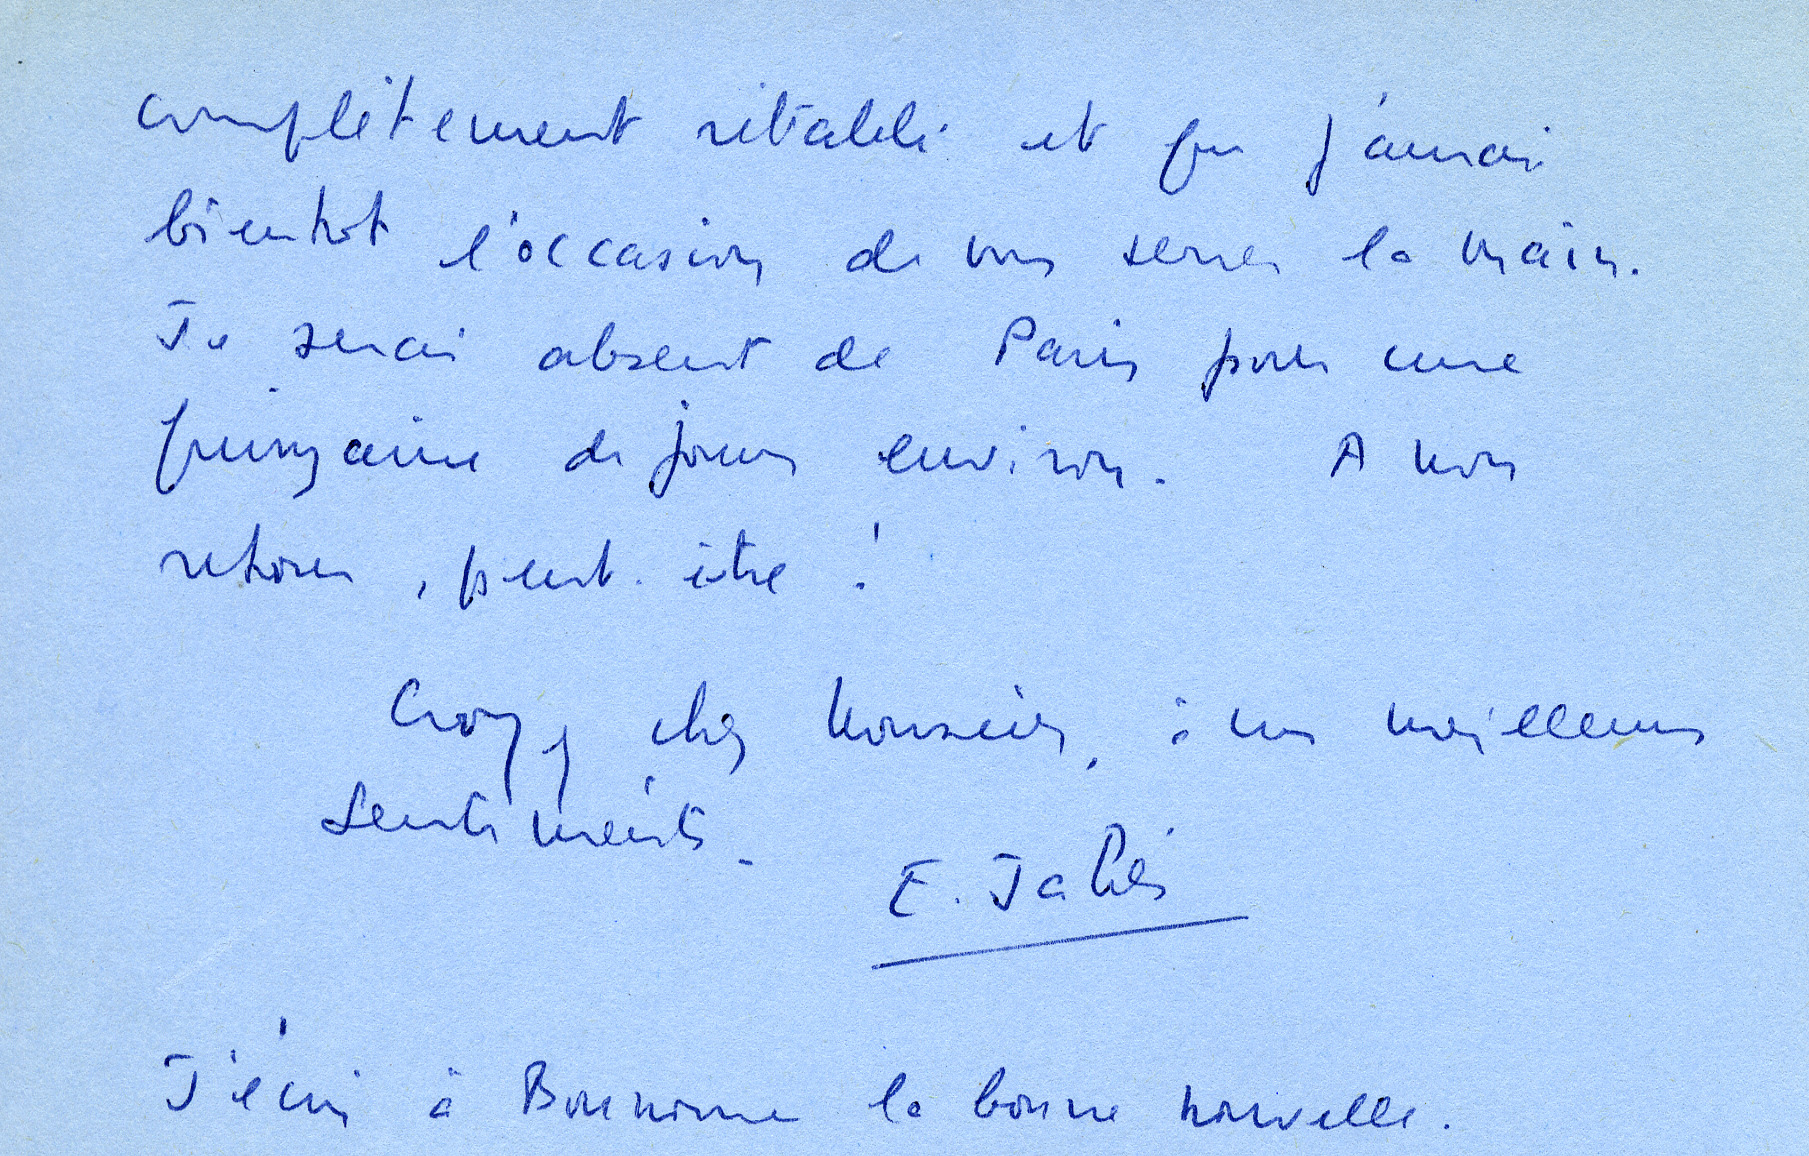 complètement rétabli et que j'aurai
bientôt l'occasion de vous serrer la main.
Je serai absent de Paris pour une
quinzaine de jours environ. A mon
retour, peut-être !
Croyez, cher Monsieur, à mes meilleurs
sentiments.
E. Jabès
J'écris à la bonne nouvelle.